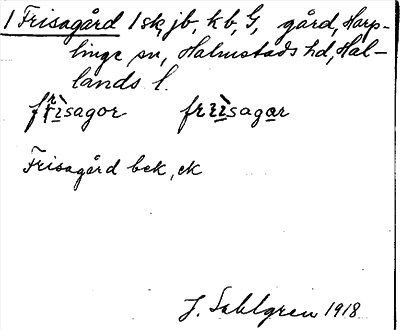 1 Frisagård 1 sk, jb, kb, G, gård, Harp-
linge sn, Halmstads hd, Hal-
lands l.
frìsagor frìsagar
Frisagård bek, ek
J. Sahlgren 1918